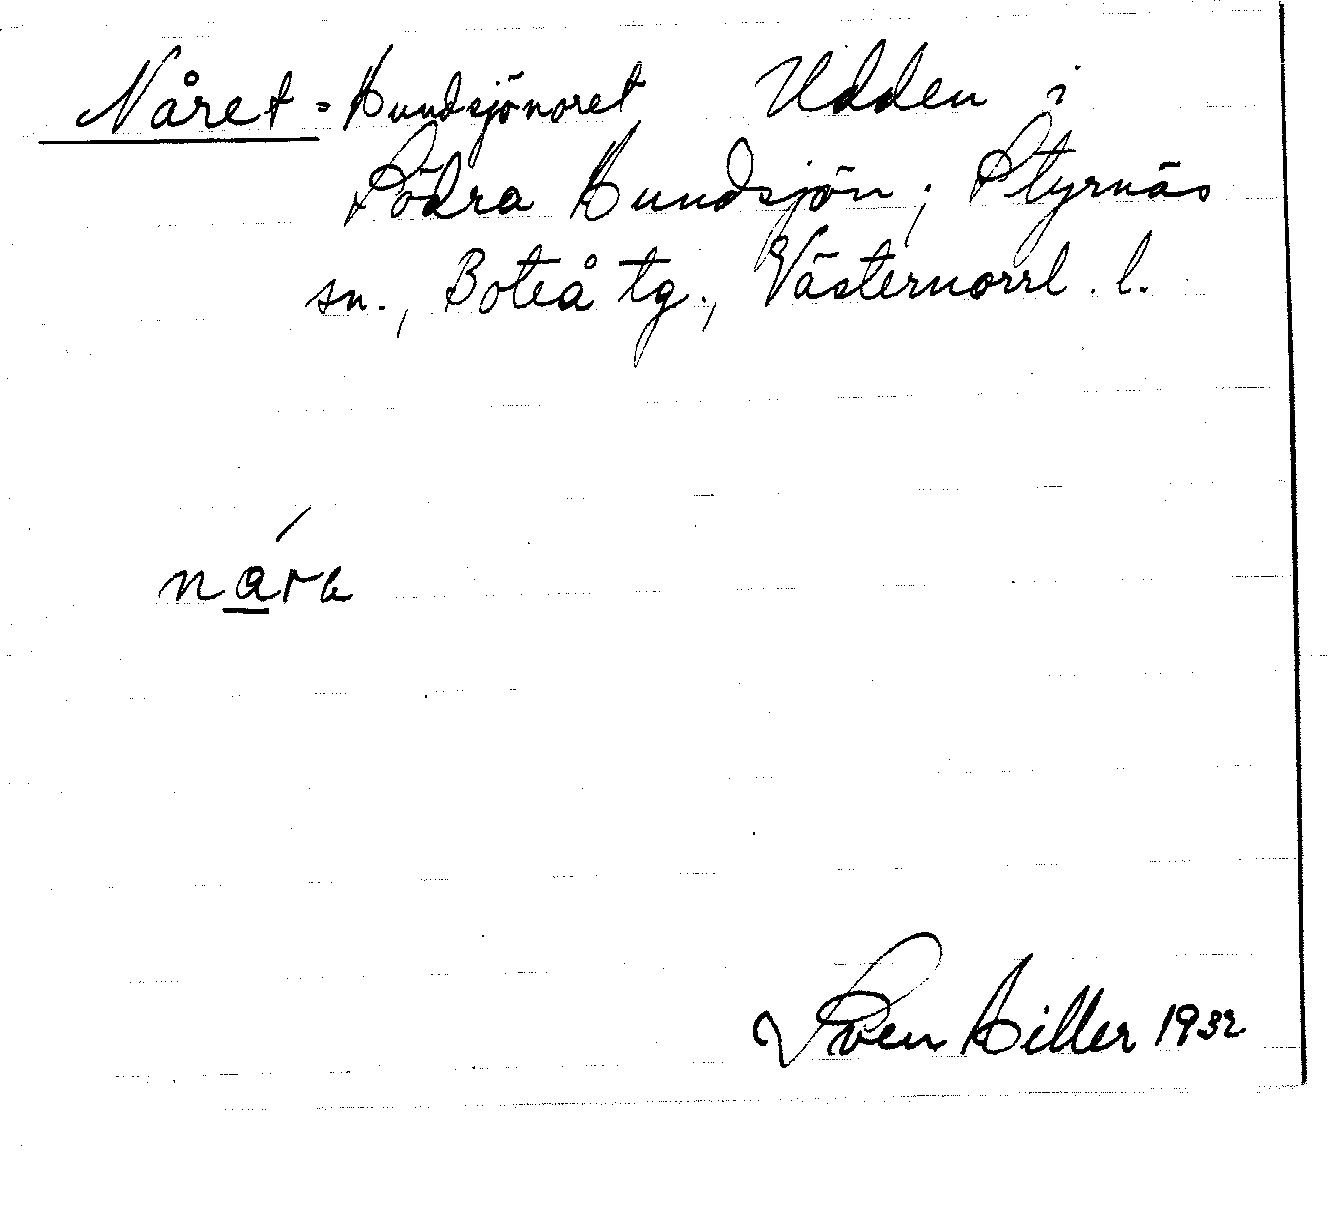 Nåret = Hundsjönoret Udden i
Södra Hundsjön, Styrnäs
sn., Boteå tg., Västernorrl. l.
nára
Sven Hiller 1932